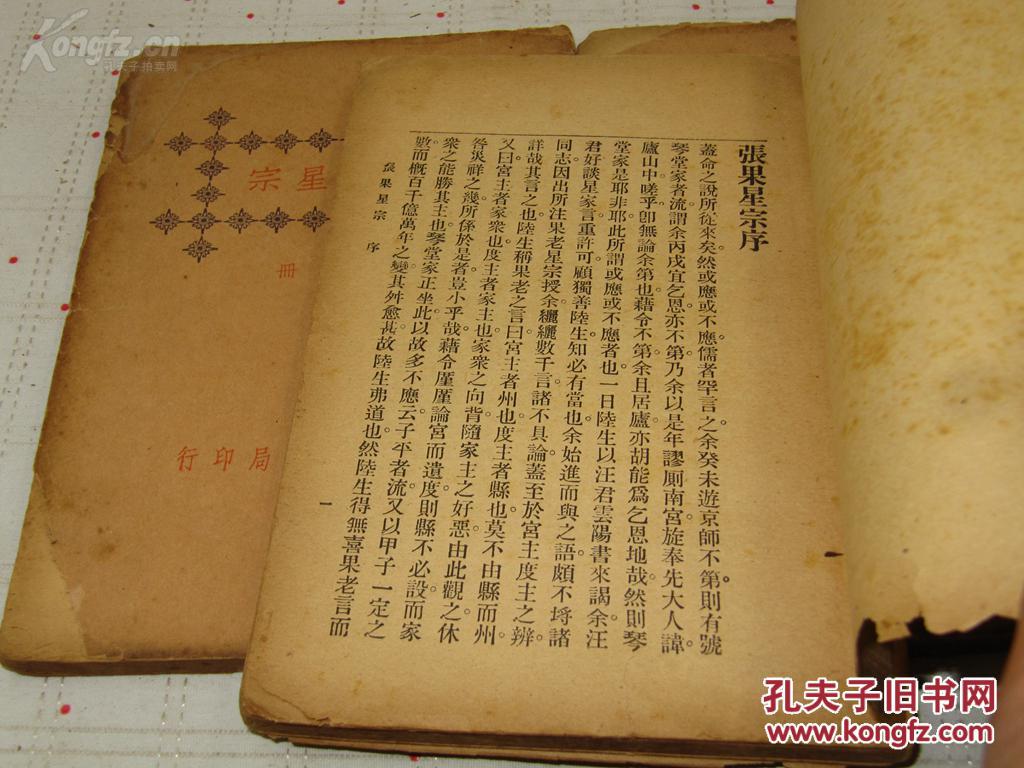 張果星宗序
蓋命之說所從來矣。然或應或不應。儒者罕言之。余癸未遊京師不第。則有號
琴堂家者流。謂余丙戌宜乞恩亦不第。乃余以是年謬厠南宮。旋奉先大人諱。
廬山中。嗟乎。卽無論余第也。藉令不第。余且居廬。亦胡能爲乞恩地哉。然則琴
堂家是耶非耶。此所謂或應或不應者也。一日陸生以汪君雲陽書來謁余。汪
君好談星家言。重許可。顧獨善陸生。知必有當也。余始進而與之語。頗不埒諸
同志。因出所注果老星宗授余。纚纚數千言。諸不具論。蓋至於宮主度主之辨。
詳哉其言之也。陸生稱果老之言曰。宮主者州也。度主者縣也。莫不由縣而州。
又曰宮主者家衆也。度主者家主也。家衆之向背。隨家主之好惡。由此觀之。休
咎災祥之幾。所係於是者。豈小乎哉。藉令厪厪論宮而遺度。則縣不必設。而家
衆之能勝其主也。琴堂家正坐此。以故多不應云。子平者流。又以甲子一定之
數。而槪百千億萬年之變。其舛愈甚。故陸生弗道也。然陸生得無喜果老言而
張果星宗 序
一
星宗
冊
局印行
Kongfz.cn
孔夫子拍卖网
孔夫子旧书网
www.kongfz.com